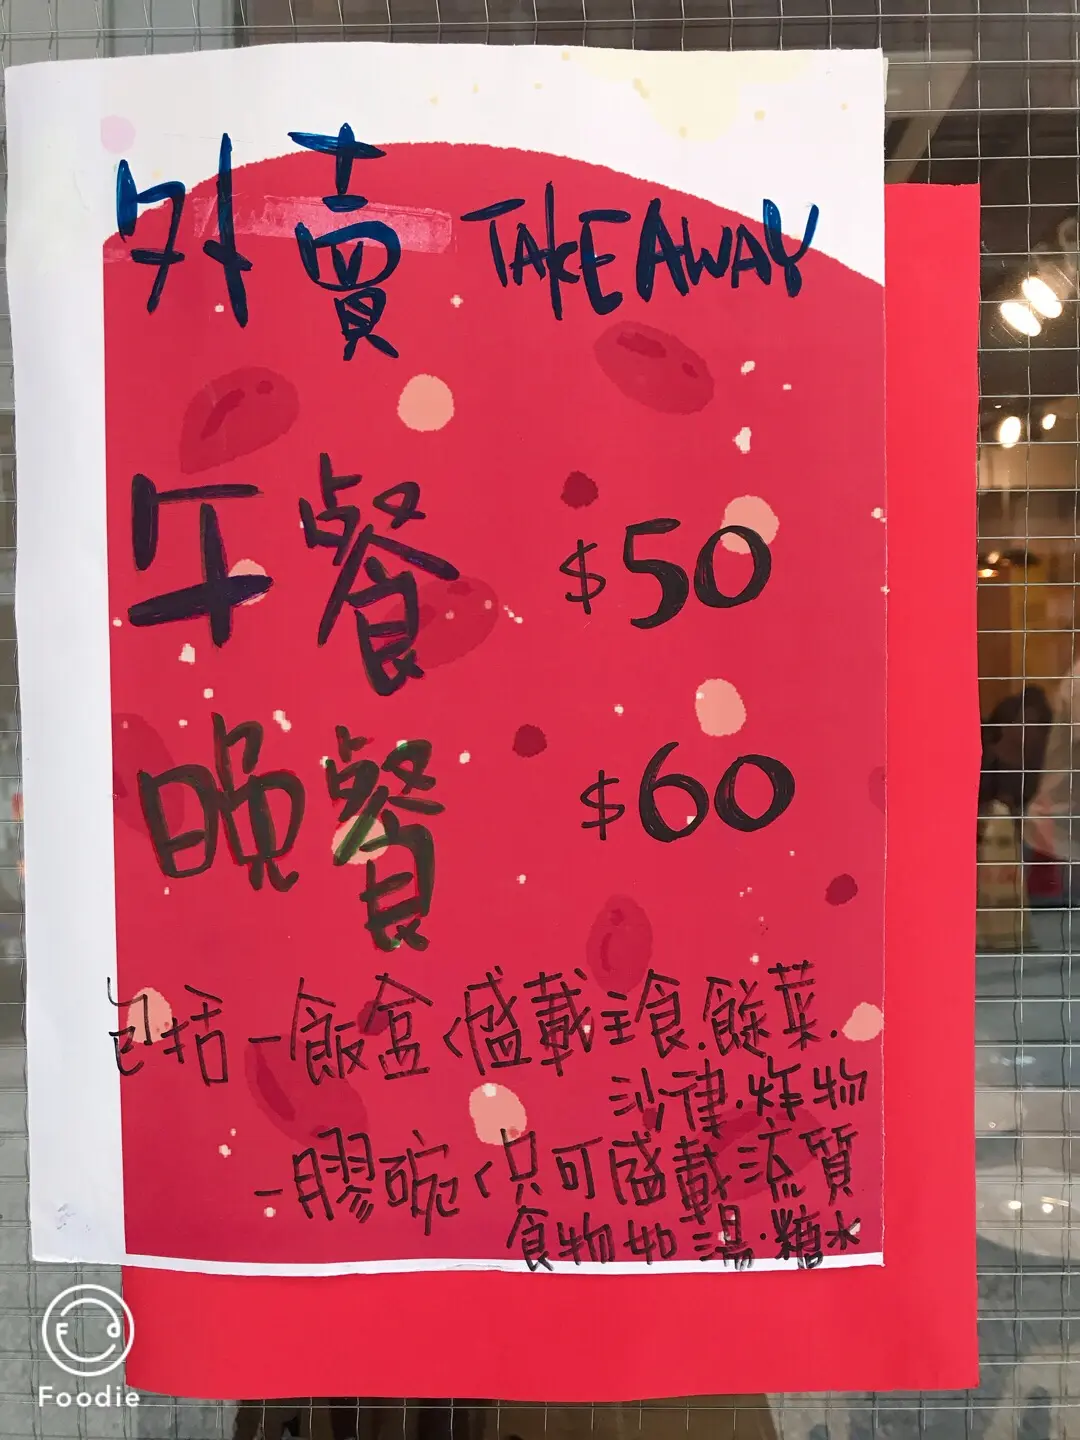 外賣 TAKEAWAY
午餐 $50
晚餐 $60
包括 - 飯盒 < 盛載主食.餸菜.
沙律.炸物
- 膠碗 < 只可盛載流質
食物如湯.糖水
Foodie